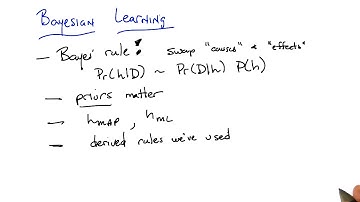 Bayesian Learning
- Bayes' rule! swap "causes" & "effects"
Pr(h|D) ~ Pr(D|h) P(h)
- priors matter
- hMAP, hML
- derived rules we've used